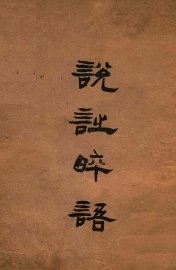 說詩晬語